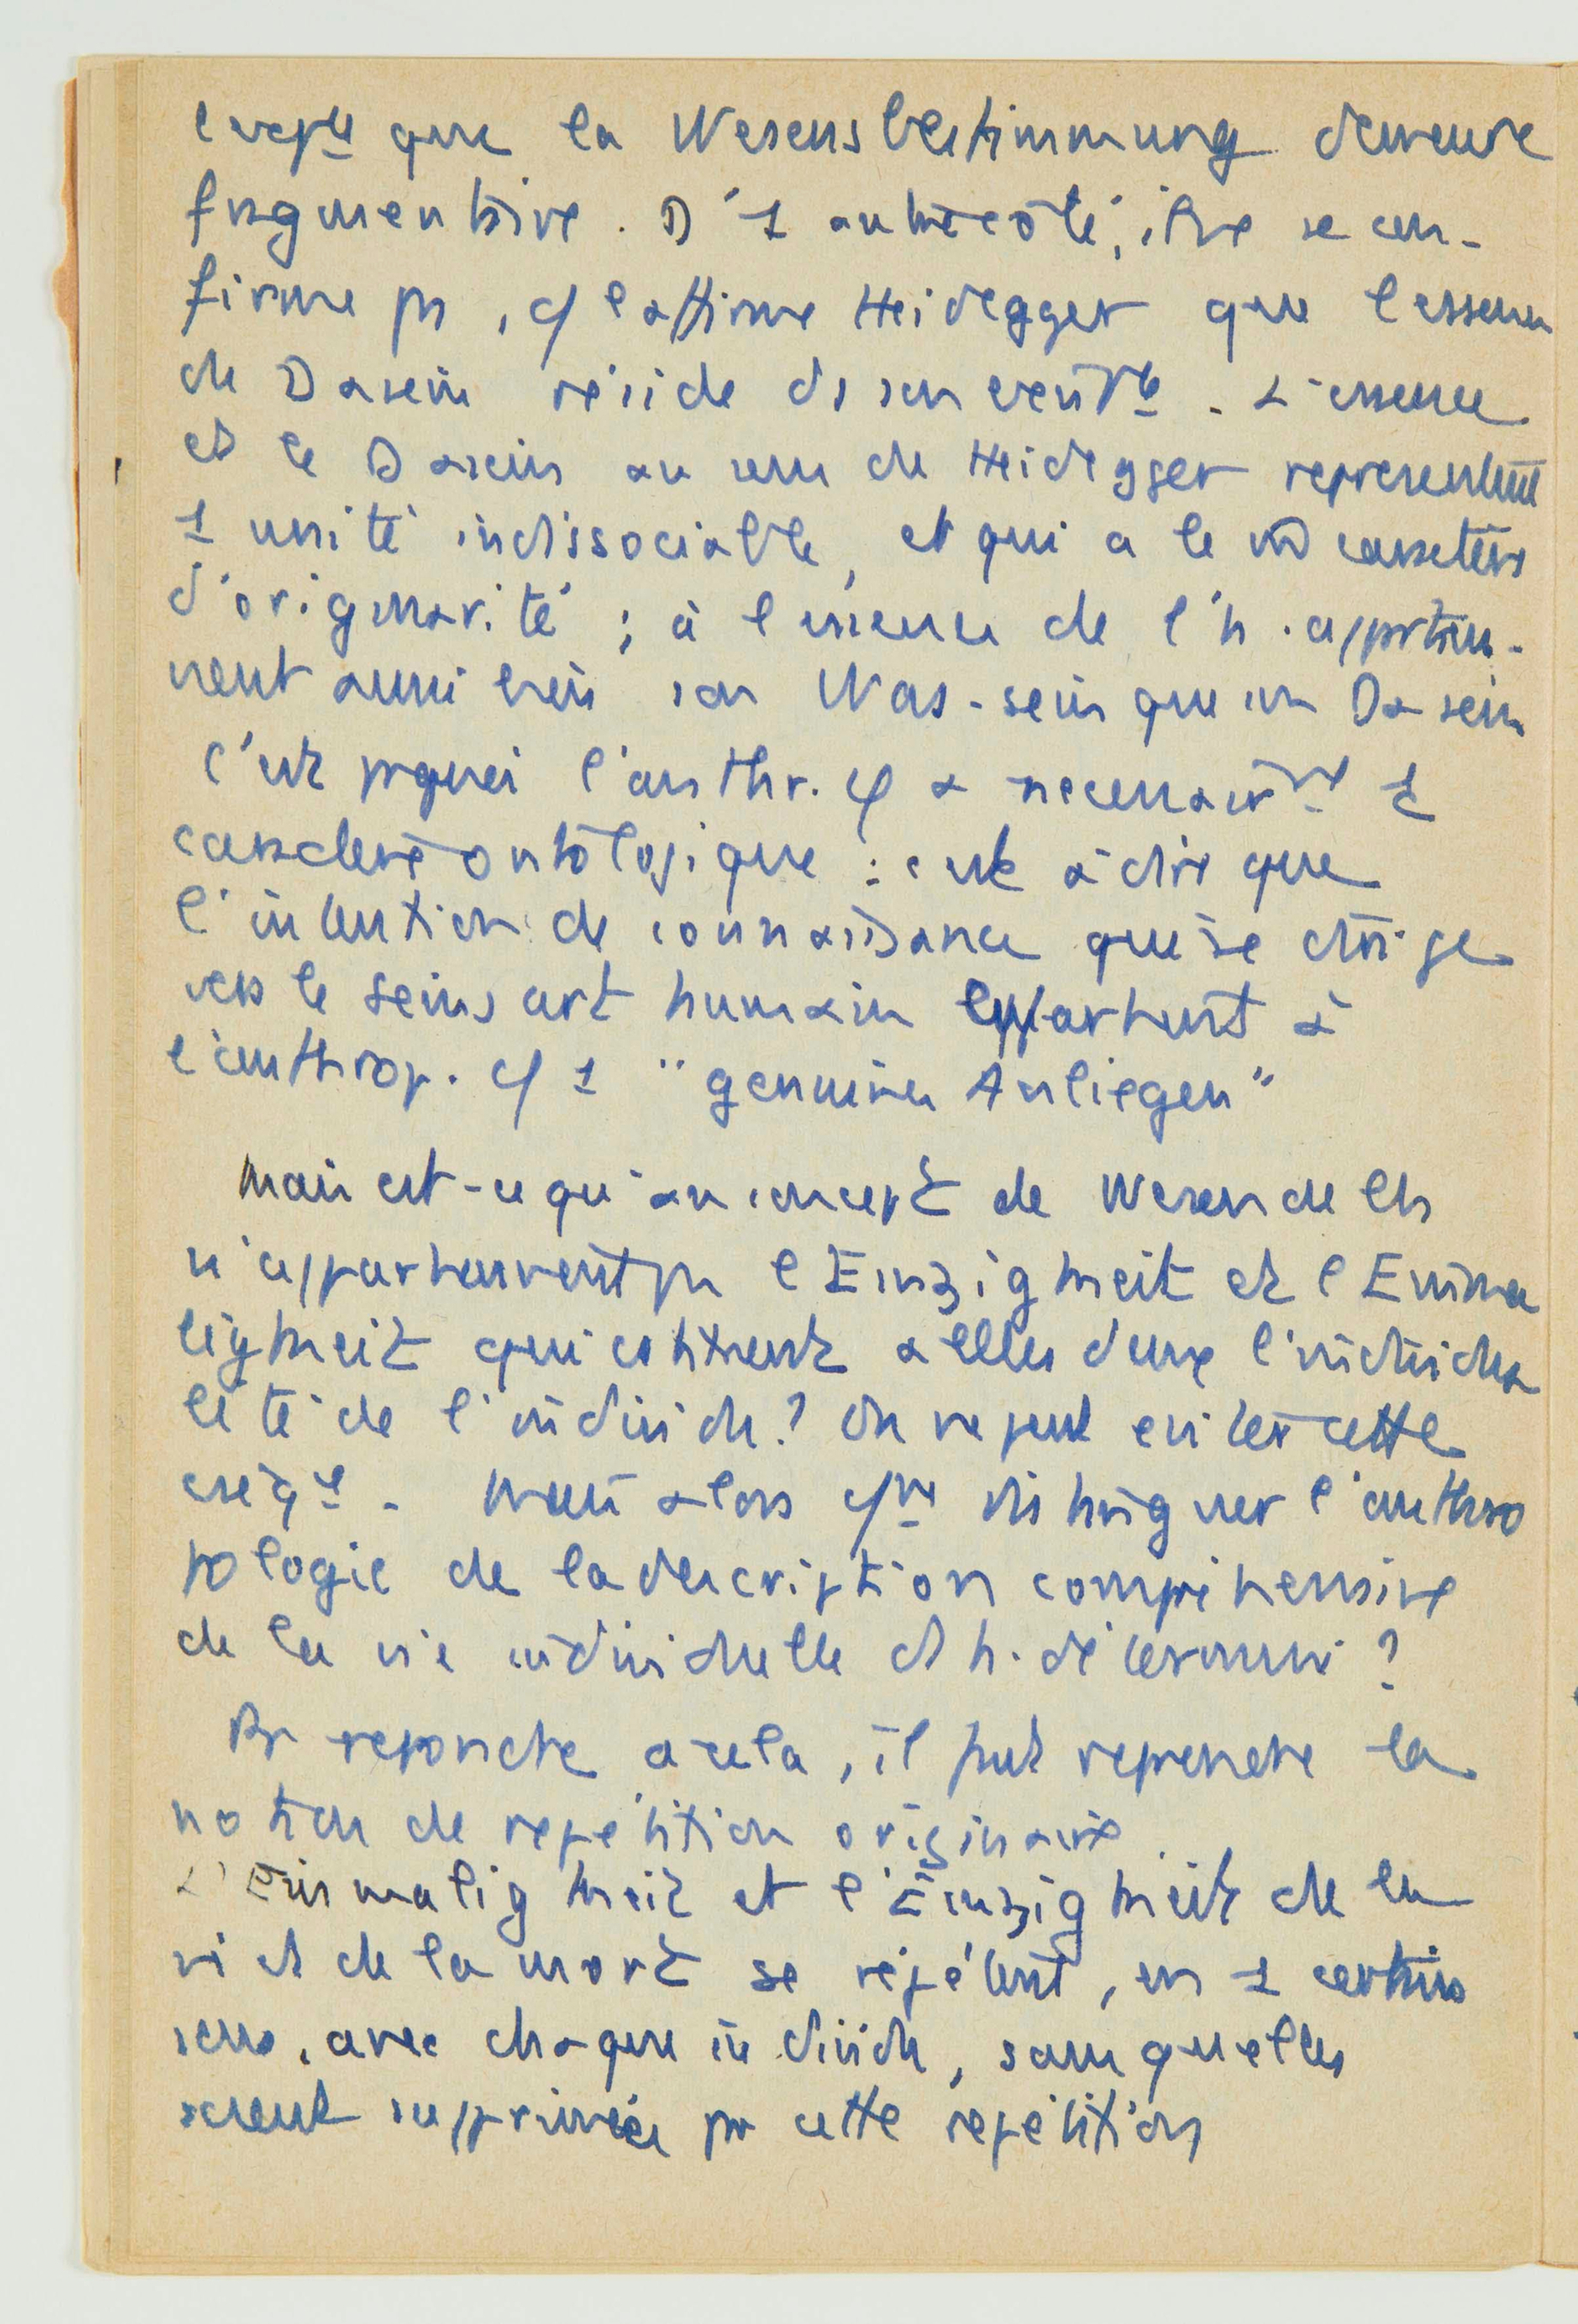 que la Wesensbestimmung demeure
fragmentaire. D'1 autre côté, il ne se con-
firme ps, cf l'affirme Heidegger que l'essence
de Dasein réside ds son . L'essence
et le Dasein au sens de Heidegger représentent
1 unité indissociable, et qui a le caractère
d'originarité ; à l'essence de l'h. apportien-
nent aussi bien son Was-sein que son Dasein
C'est pquoi l'anthr. φ a nécessairmt 1
caractère ontologique : c'est à dire que
l'intention de connaissance qui se dirige
vers le Seinsart humain appartient à
l'anthrop. φ 1 "genuines Anliegen"
Mais est-ce qu'au concept de Wesen de l'h
n'appartiennent ps l'Einzigkeit et l'Einma
ligkeit qui constituent à elles deux l'individua
lité de l'individu? On ne peut eviter cette
. Mais alors distinguer l'anthro
pologie de la description compréhensive
de la vie individuelle d'1 h. déterminé ?
Pr repondre à cela, il faut reprendre la
notion de repétition originaire.
L'Einmaligkeit et l'Einzigkeit de la
vie et de la mort se répètent, en 1 certain
sens, avec chaque individu, sans qu'elles
soient supprimées par cette repétition